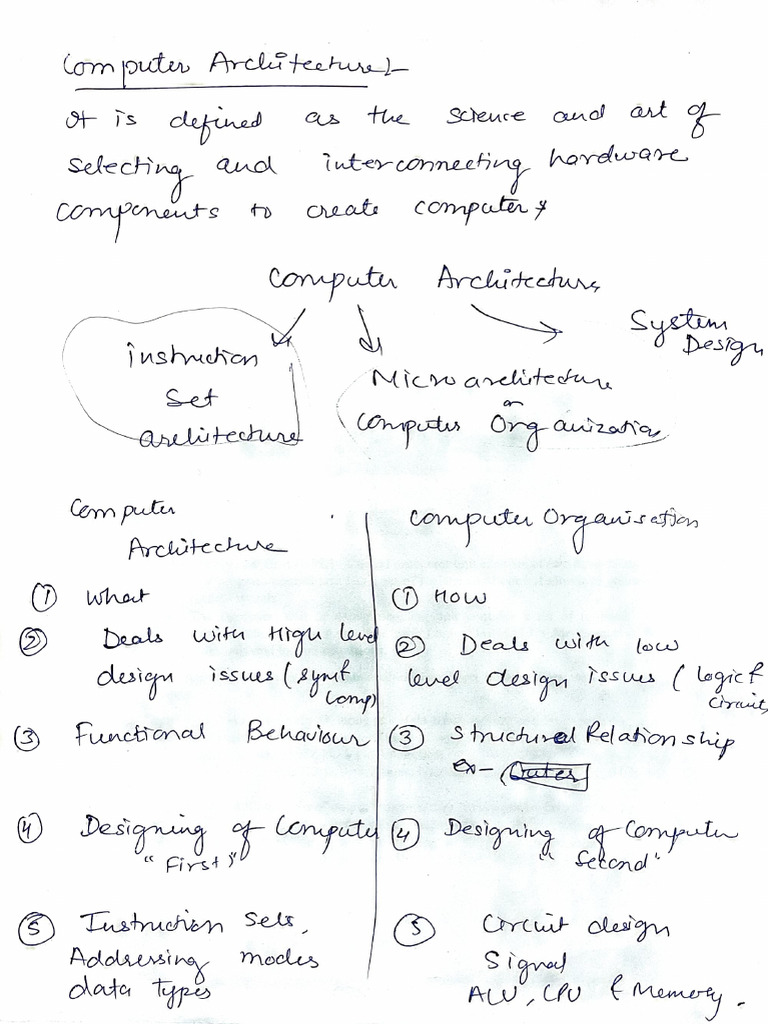 Computer Architecture :-
It is defined as the science and art of
selecting and interconnecting hardware
components to create computer
Computer Architecture
Instruction
Set
Architecture
Microarchitecture
or
Computer Organization
System
Design
Computer
Architecture
① What
② Deals with High level
design issues (
Comp)
③ Functional Behaviour
④ Designing of Computer
"First"
⑤ Instruction Sets,
Addressing modes
data types
Computer Organisation
① How
② Deals with low
level design issues (Logic &
Circuit)
③ Structural Relationship
ex-
④ Designing of Computer
"Second"
⑤ Circuit design
Signal
ALU, CPU & Memory.